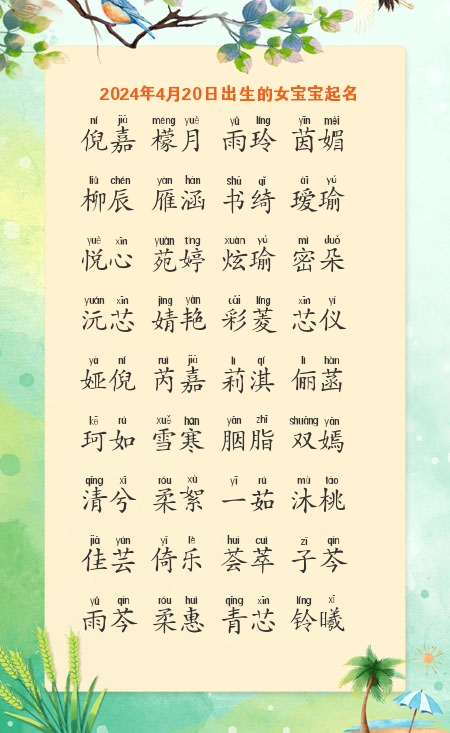 2024年4月20日出生的女宝宝起名
ní jiā méng yuè yǔ líng yīn mèi
倪嘉 檬月 雨玲 茵媚
liǔ chén yàn hán shū qǐ ài yú
柳辰 雁涵 书绮 瑷瑜
yuè xīn yuàn tíng xuàn yú mì duǒ
悦心 苑婷 炫瑜 密朵
yuán xīn jìng yàn cǎi líng xīn yí
沅芯 婧艳 彩菱 芯仪
yà ní ruì jiā lì qí lì hàn
娅倪 芮嘉 莉淇 俪菡
kē rú xuě hán yān zhī shuāng yān
珂如 雪寒 胭脂 双嫣
qīng xī róu xù yī rú mù táo
清兮 柔絮 一茹 沐桃
jiā yún yǐ lè huì cuì zǐ qín
佳芸 倚乐 荟萃 子芩
yǔ qín róu huì qīng xīn líng xī
雨芩 柔惠 青芯 铃曦